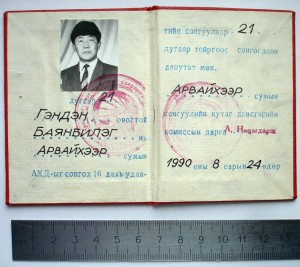 дугаар 21
Гэндэн овогтой
Баянбилэг нь
Арвайхээр сумын
АХД-ыг сонгод 16 дахь удаа-
гийн сонгуулиар 21.
дугаар тойргоос сонгогдсон
депутат мөн.
Арвайхээр. сумын
сонгуулийн нутаг дэвсгэрийн
комиссын дарга А.
1990 оны 8 сарын 24 өдөр
1 2 3 4 5 6 7 8 9 10 11 12 13